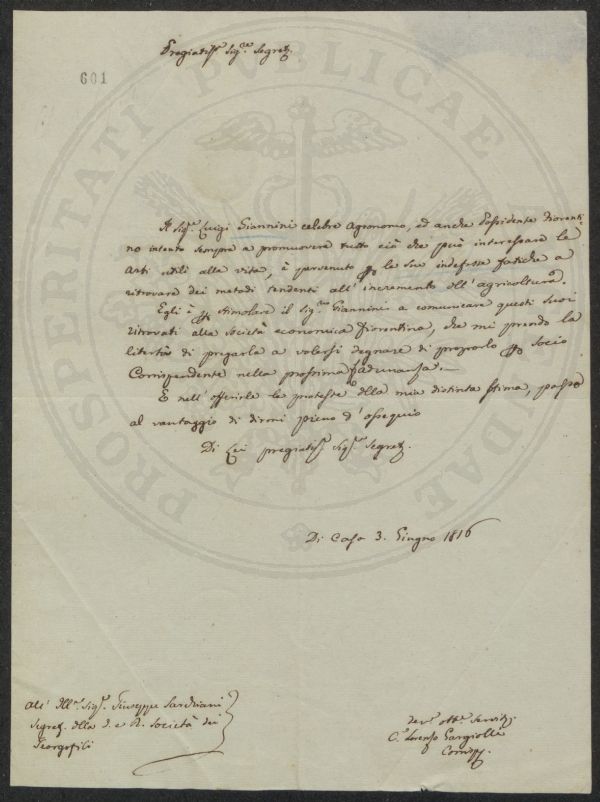 Pregiatis.º Sig.re Segret.
601
PROSPERITATI PUBLICAE
Il Sig.r Luigi Giannini celebre agronomo, ed anche Possidente Fiorenti-
no intento sempre a promuovere tutto ciò che può interessare le
arti utili alla vita, è pervenuto le sue indefesse fatiche a
ritrovare dei metodi tendenti all' incremento dll' agricoltura.
Egli è stimolare il Sig.re Giannini a comunicare questi suoi
ritrovati alla Società economica fiorentina, che mi prendo la
libertà di pregarla a volersi degnare di proporlo Socio
Corrispondente nella prossima adunanza.—
E nell' offerirle le proteste dlla mia distinta stima, passo
al vantaggio di dirmi pieno d' ossequio
Di Lei pregiatis. Sig.r Segret.
Di Casa 3. Giugno 1816
All' Ill.mo Sig.r Giuseppe Sarchiani
Segret. dlla I. e R. Società dei
Georgofili
Dev.º obb.º Servid.
C. Lorenzo Gargiolli
Corrisp.